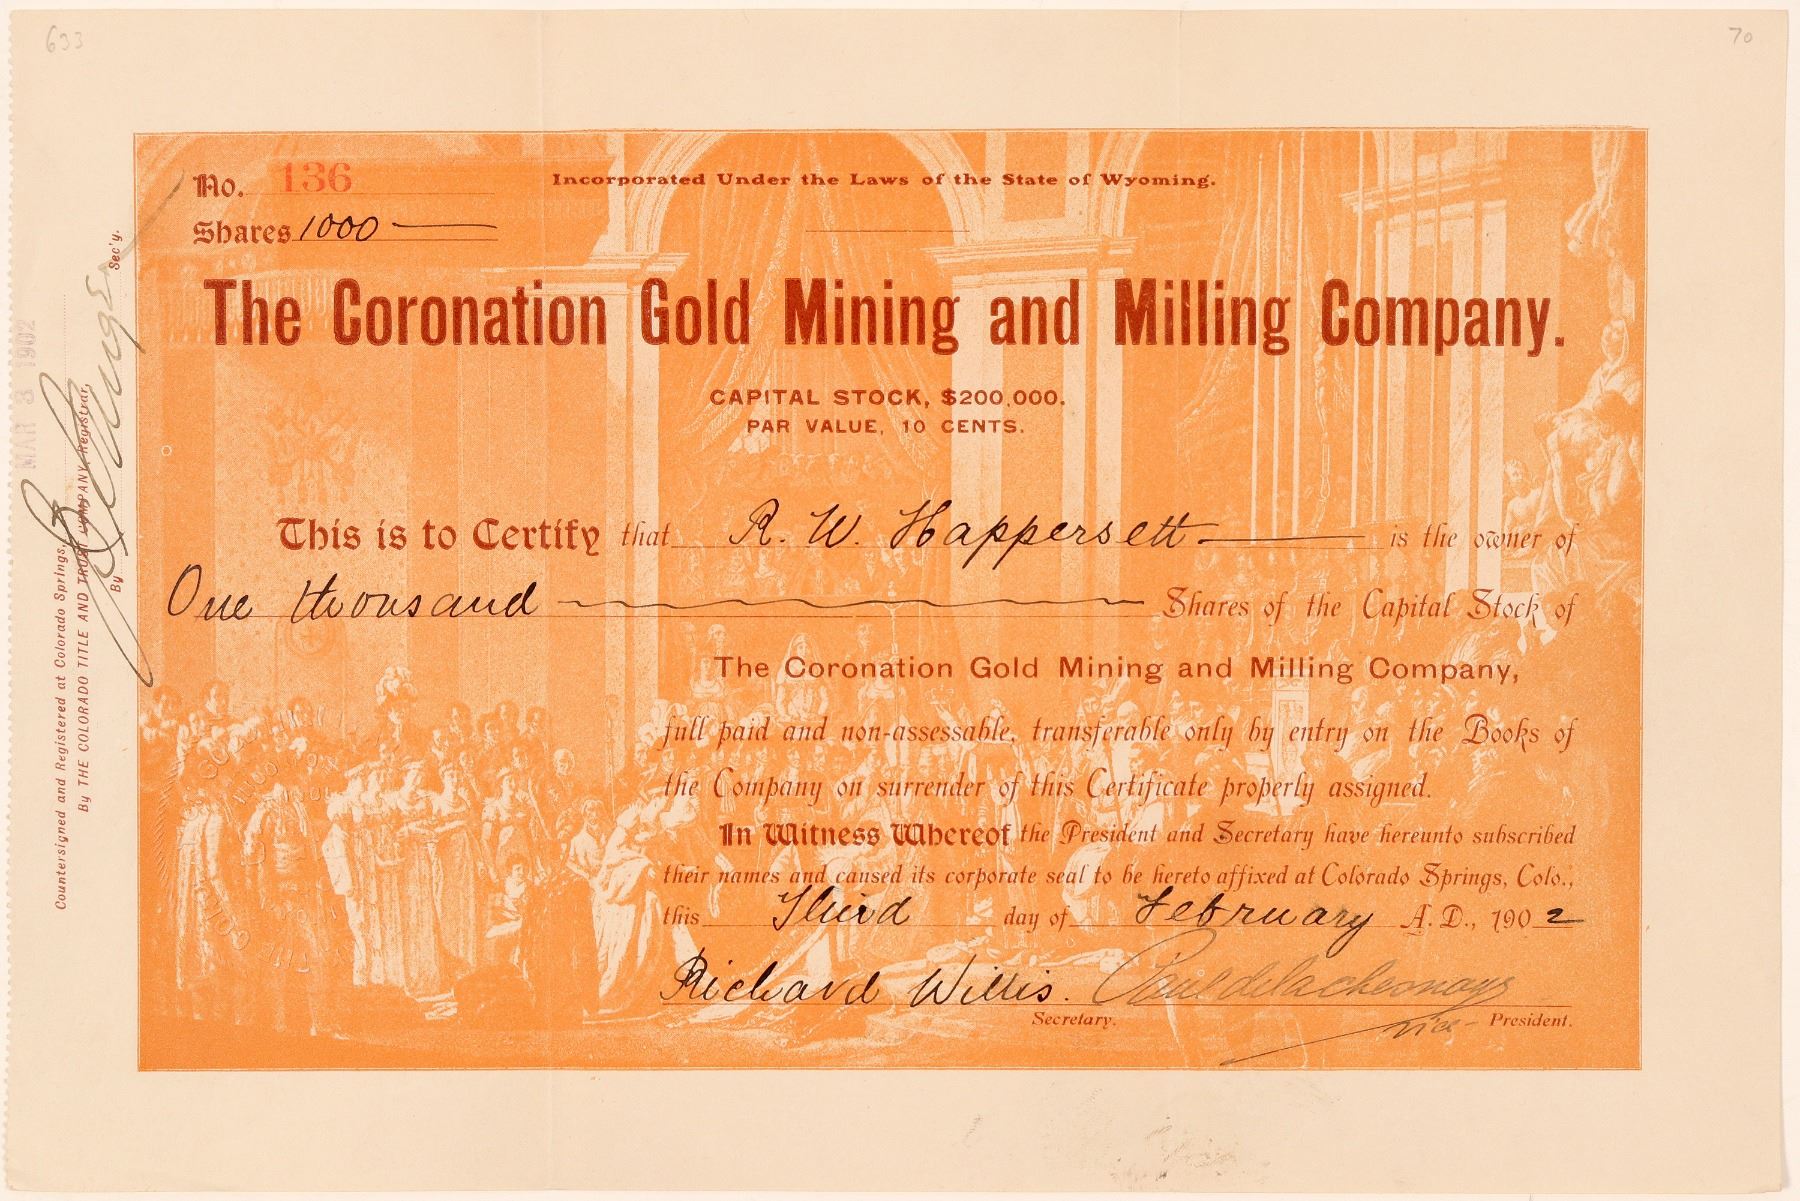 633
70
No. 136
Incorporated Under the Laws of the State of Wyoming.
Shares 1000
The Coronation Gold Mining and Milling Company.
CAPITAL STOCK, $200,000.
PAR VALUE, 10 CENTS.
This is to Certify that R. W. Happersett is the owner of
One thousand Shares of the Capital Stock of
The Coronation Gold Mining and Milling Company,
full paid and non-assessable, transferable only by entry on the Books of
the Company on surrender of this Certificate properly assigned.
In Witness Whereof the President and Secretary have hereunto subscribed
their names and caused its corporate seal to be hereto affixed at Colorado Springs, Colo.,
this Third day of February A. D., 1902
Richard Willis.
Secretary.
Vice-President.
MAR 3 1902
Countersigned and Registered at Colorado Springs,
By THE COLORADO TITLE AND TRUST COMPANY Registrar,
By Sec'y.